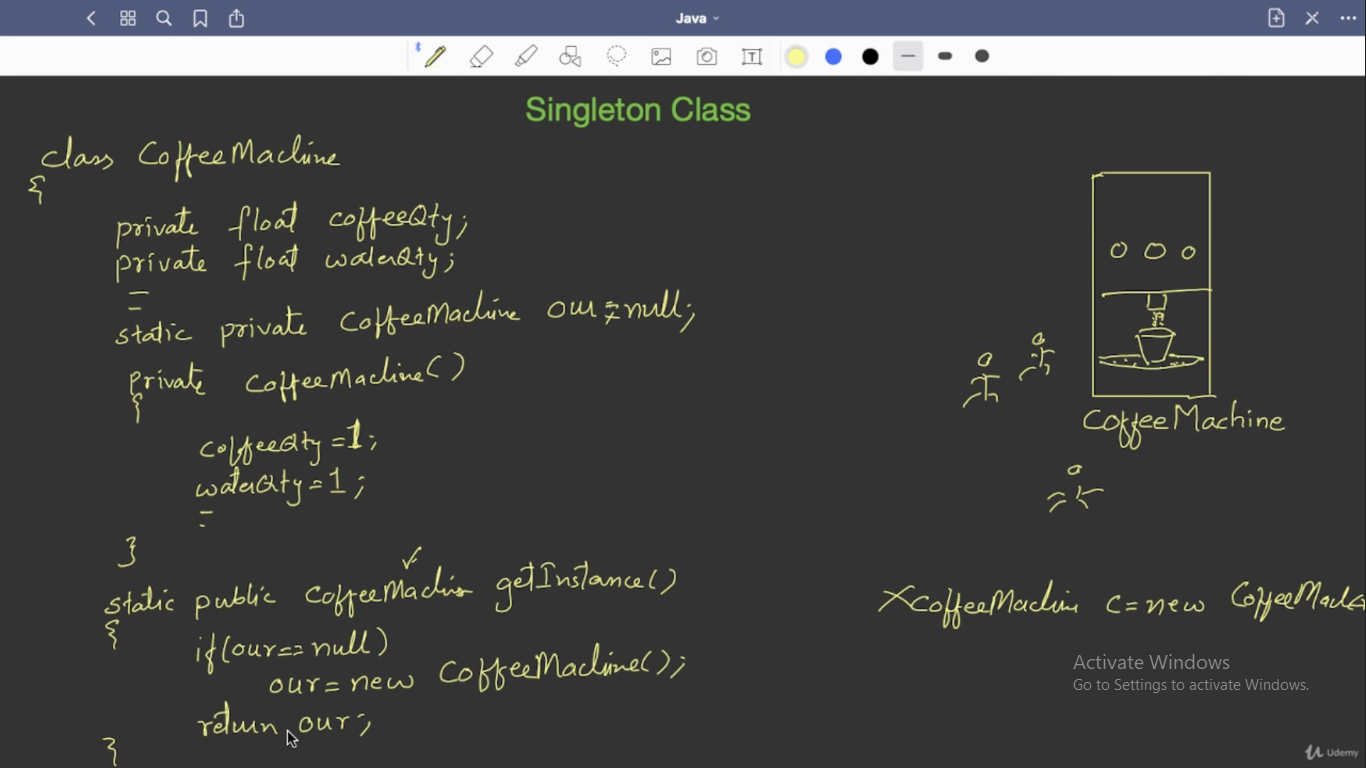 Java
Singleton Class
class CoffeeMachine
{
private float coffeeQty;
private float waterQty;
static private CoffeeMachine our = null;
private CoffeeMachine()
{
coffeeQty = 1;
waterQty = 1;
}
static public CoffeeMachine getInstance()
{
if(our == null)
our = new CoffeeMachine();
return our;
}
CoffeeMachine
X CoffeeMachine c = new CoffeeMach
Activate Windows
Go to Settings to activate Windows.
Udemy